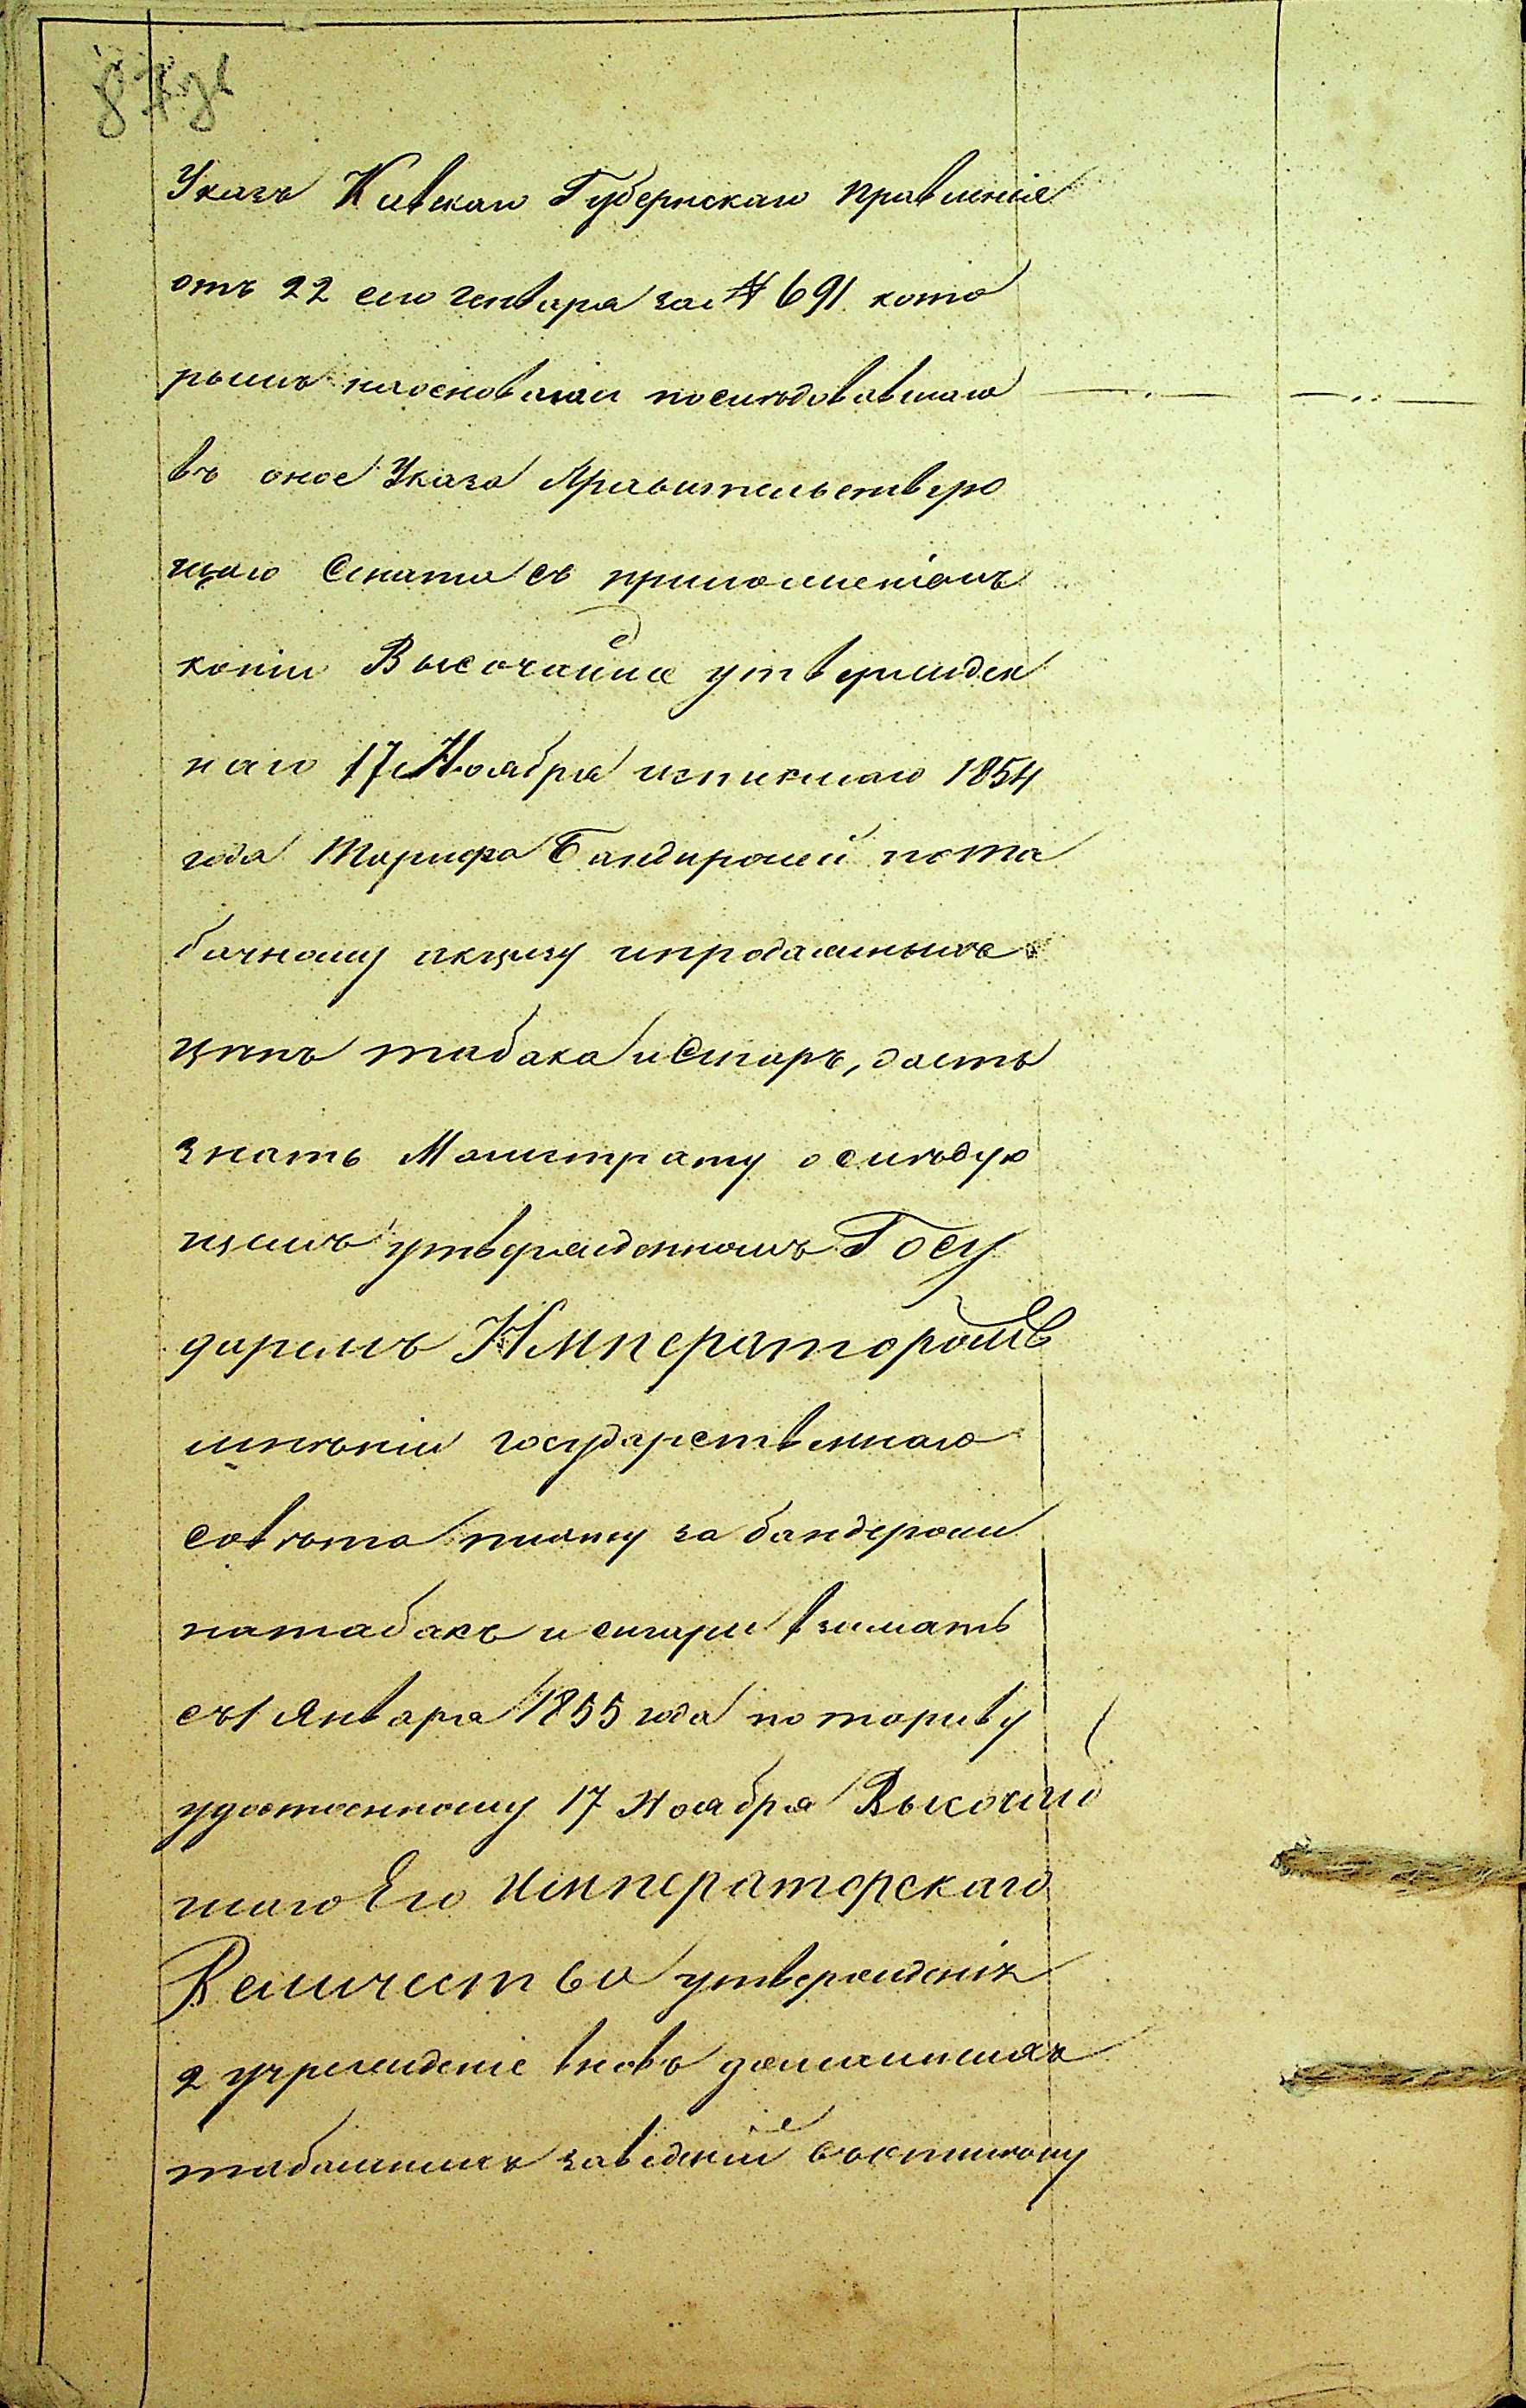 87 зв
Указъ Киевскаго Губернскаго правленія
отъ 22 сего Генваря за № 691 кото
рымъ на основаніи последовавшаго
въ оное Указа Правительствую
щаго Сената съ приложеніемъ
копіи Высочайше утвержден
наго 17 Ноября истекшаго 1854
года Тарифа Бандиролей по та
бачному акцизу и продажныхъ
цѣнъ табака и Сигаръ, дастъ
знать Магистрату о следую
щемъ утвержденномъ Госу
даремъ Императоромъ
мнѣніи государственнаго
совѣта плату за бандероли
на табакъ и сигари взимать
съ 1 Января 1855 года по тариву
удостоенному 17 Ноября Высочай
шаго Его Императорскаго
Величества утвержденія
2 учрежденіе вновь домашнихъ
табачныхъ заведеній